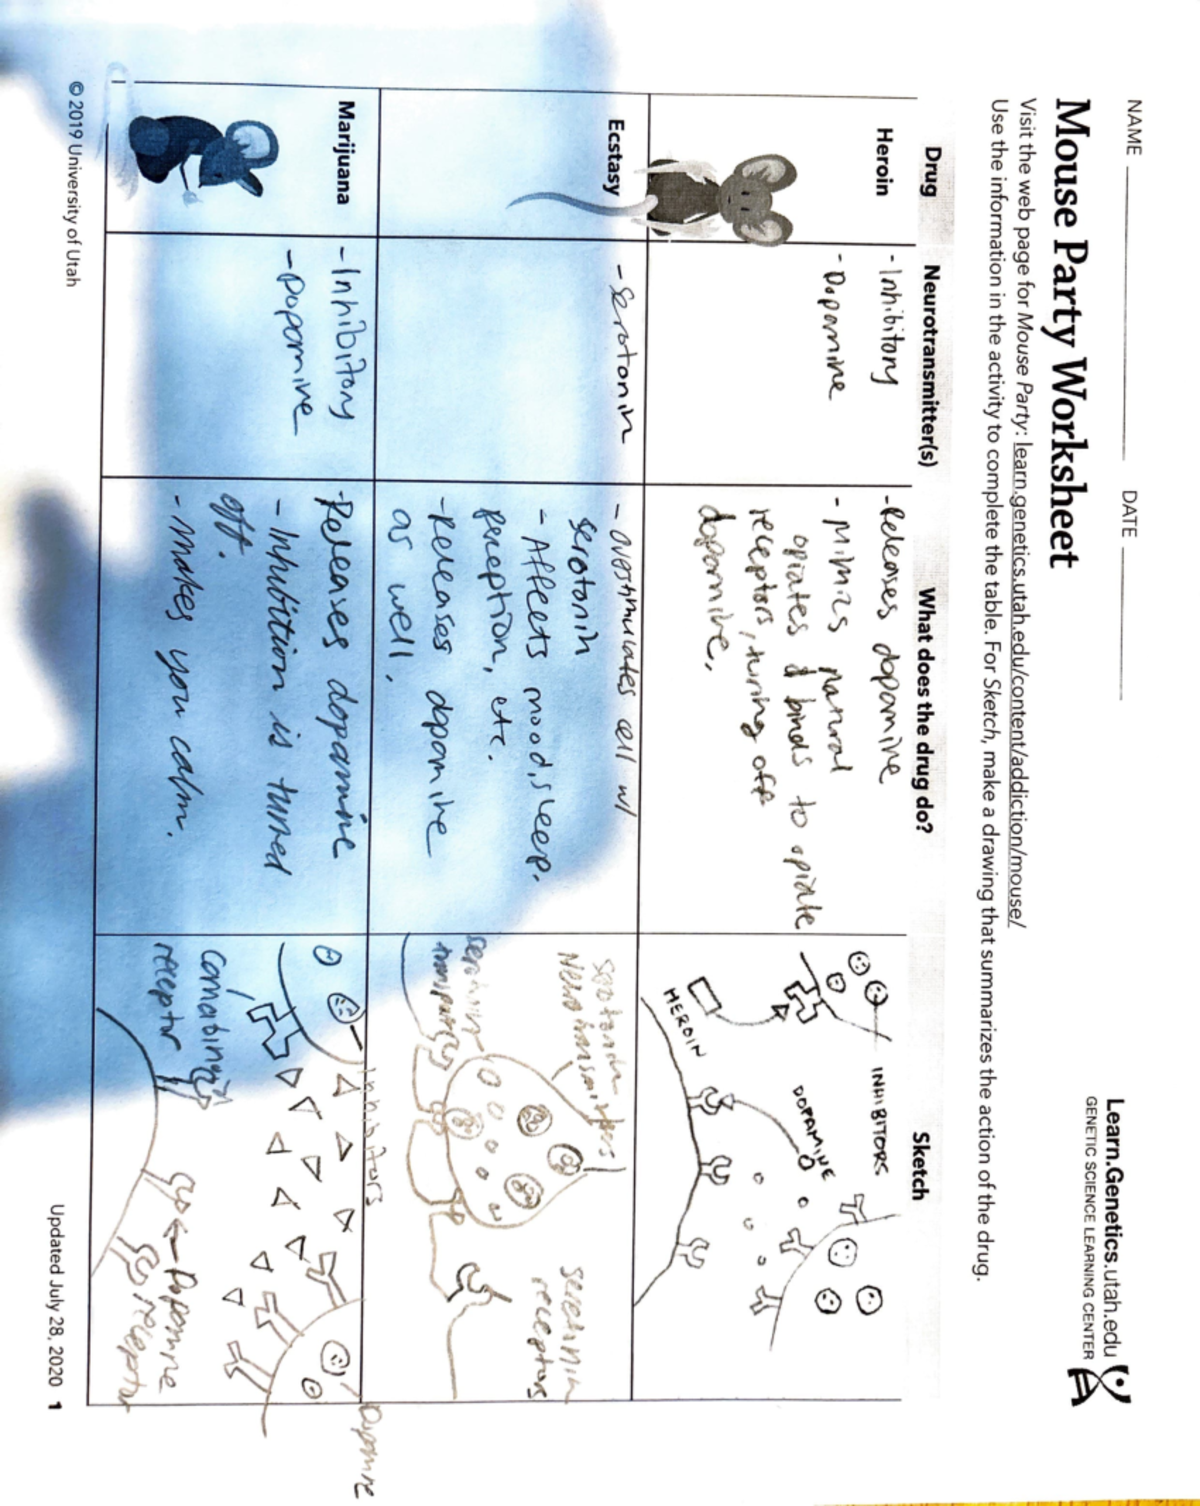 NAME DATE
Learn.Genetics.utah.edu
GENETIC SCIENCE LEARNING CENTER
Mouse Party Worksheet
Visit the web page for Mouse Party: learn.genetics.utah.edu/content/addiction/mouse/
Use the information in the activity to complete the table. For Sketch, make a drawing that summarizes the action of the drug.
Drug Neurotransmitter(s) What does the drug do? Sketch
Heroin
- Inhibitory
- Dopamine
- Releases dopamine
- Mimics natural
opiates & binds to opiate
receptors, turning off
dopamine.
INHIBITORS
DOPAMINE
HEROIN
Ecstasy
- Serotonin
- overstimulates cell w/
serotonin
- Affects mood, sleep,
perception, etc.
- Releases dopamine
as well.
serotonin
Neurotransmitters
serotonin
transporters
serotonin
receptors
Marijuana
- Inhibitory
- Dopamine
- Releases dopamine
- Inhibition is turned
off.
- makes you calm.
Inhibitors
receptor
Dopamine
Dopamine
receptor
© 2019 University of Utah
Updated July 28, 2020 1